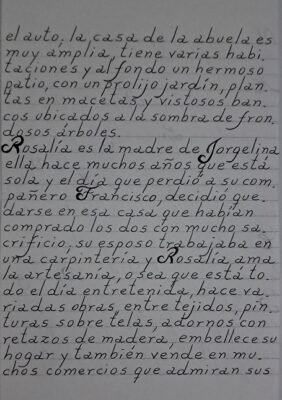 el auto. la casa de la abuela es
muy amplia, tiene varias habi-
taciones y al fondo un hermoso
patio, con un prolijo jardín, plan-
tas en macetas y vistosos ban-
cos ubicados a la sombra de fron-
dosos árboles.
Rosalía es la madre de Jorgelina
ella hace muchos años que está
sola y el día que perdió a su com-
pañero Francisco, decidió que-
darse en esa casa que habían
comprado los dos con mucho sa-
crificio, su esposo trabajaba en
una carpintería y Rosalía, ama
la artesanía, o sea que está to-
do el día entretenida, hace va-
riadas obras, entre tejidos, pin-
turas sobre telas, adornos con
retazos de madera, embellece su
hogar y también vende en mu-
chos comercios que admiran sus